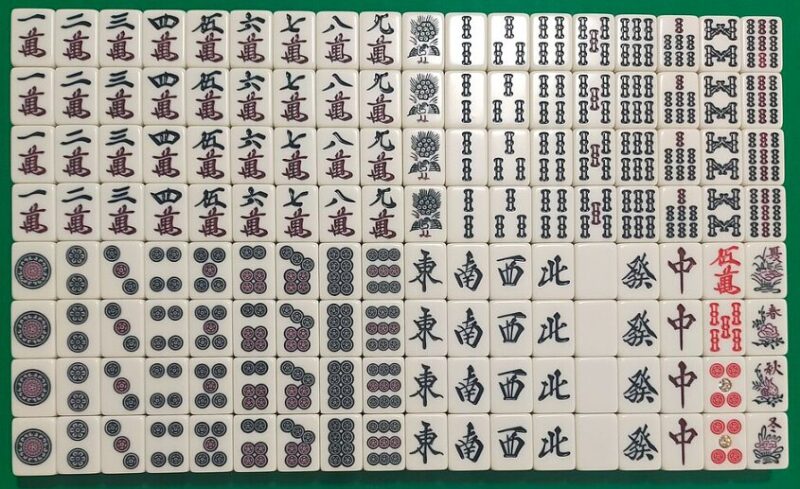 一萬 二萬 三萬 四萬 伍萬 六萬 七萬 八萬 九萬
一萬 二萬 三萬 四萬 伍萬 六萬 七萬 八萬 九萬
一萬 二萬 三萬 四萬 伍萬 六萬 七萬 八萬 九萬
一萬 二萬 三萬 四萬 伍萬 六萬 七萬 八萬 九萬
東 南 西 北 發 中 伍萬 夏
東 南 西 北 發 中 春
東 南 西 北 發 中 秋
東 南 西 北 發 中 冬